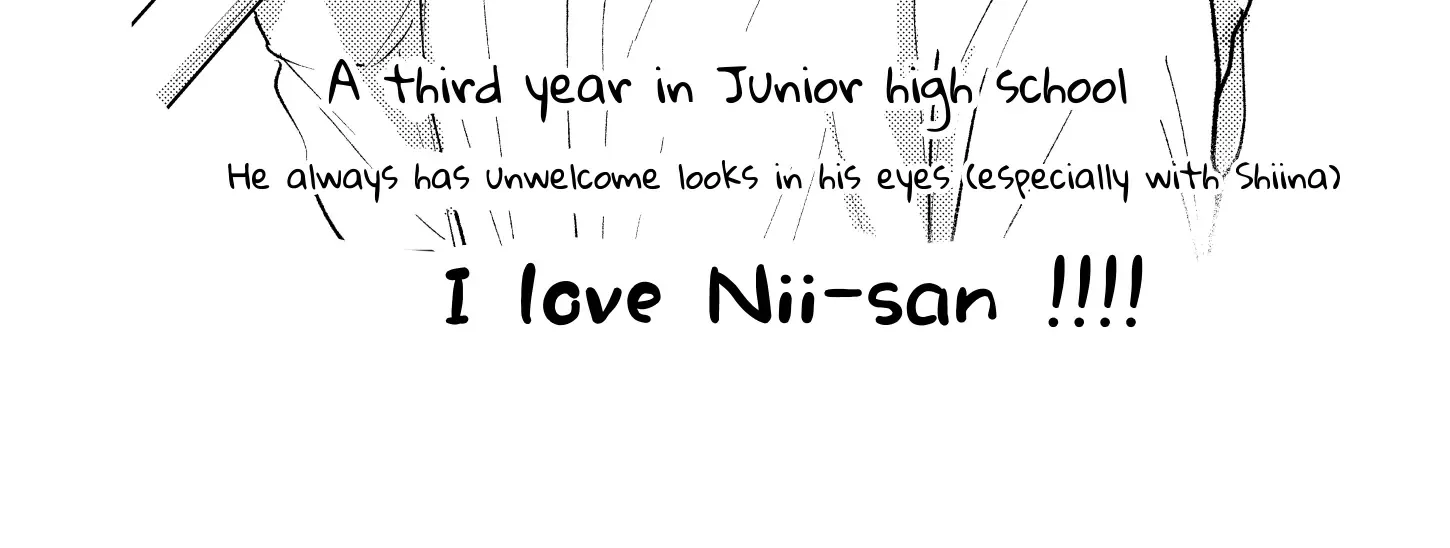 A third year in Junior high school
He always has unwelcome looks in his eyes (especially with Shiina)
I love Nii-san !!!!